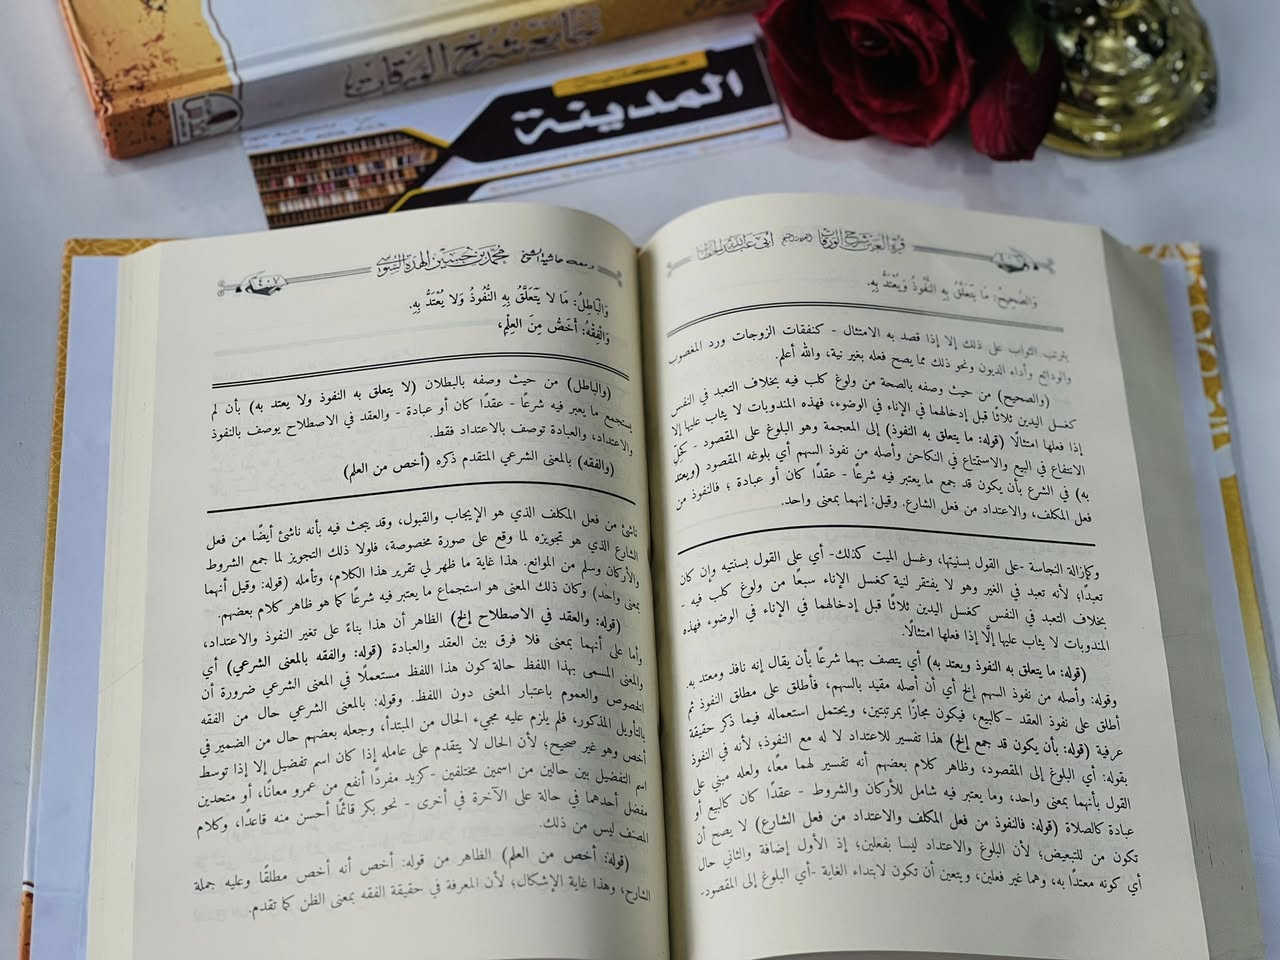 جامع شروح الورقات
مكتبة
المدينة
قرة العين شرح الورقات
أبي عبد الله
وَالصَّحِيحُ: مَا يَتَعَلَّقُ بِهِ النُّفُوذُ وَيُعْتَدُّ بِهِ.
يترتب الثواب على ذلك إلا إذا قصد به الامتثال - كنفقات الزوجات ورد المغصوب
والودائع وأداء الديون ونحو ذلك مما يصح فعله بغير نية، والله أعلم.
(والصحيح) من حيث وصفه بالصحة من ولوغ كلب فيه بخلاف التعبد في النفس
كغسل اليدين ثلاثًا قبل إدخالهما في الإناء في الوضوء، فهذه المندوبات لا يثاب عليها إلا
إذا فعلها امتثالًا (قوله: ما يتعلق به النفوذ) إلى المعجمة وهو البلوغ على المقصود - كحل
الانتفاع في البيع والاستمتاع في النكاحن وأصله من نفوذ السهم أي بلوغه المقصود (ويعتد
به) في الشرع بأن يكون قد جمع ما يعتبر فيه شرعًا - عقدًا كان أو عبادة ؛ فالنفوذ من
فعل المكلف، والاعتداد من فعل الشارع. وقيل: إنهما بمعنى واحد.
وكإزالة النجاسة -على القول بسنيتها، وغسل الميت كذلك- أي على القول بسنتيه وإن كان
تعبدًا؛ لأنه تعبد في الغير وهو لا يفتقر لنية كغسل الإناء سبعًا من ولوغ كلب فيه -
بخلاف التعبد في النفس كغسل اليدين ثلاثًا قبل إدخالهما في الإناء في الوضوء فهذه
المندوبات لا يثاب عليها إلَّا إذا فعلها امتثالًا.
(قوله: ما يتعلق به النفوذ ويعتد به) أي يتصف بهما شرعًا بأن يقال إنه نافذ ومعتد به.
وقوله: وأصله من نفوذ السهم إلخ أي أن أصله مقيد بالسهم، فأطلق على مطلق النفوذ ثم
أطلق على نفوذ العقد -كالبيع، فيكون مجازًا بمرتبتين، ويحتمل استعماله فيما ذكر حقيقة
عرفية (قوله: بأن يكون قد جمع إلخ) هذا تفسير للاعتداد لا له مع النفوذ؛ لأنه في النفوذ
بقوله: أي البلوغ إلى المقصود، وظاهر كلام بعضهم أنه تفسير لهما معًا، ولعله مبني على
القول بأنهما بمعنى واحد، وما يعتبر فيه شامل للأركان والشروط - عقدًا كان كالبيع أو
عبادة كالصلاة (قوله: فالنفوذ من فعل المكلف والاعتداد من فعل الشارع) لا يصح أن
تكون من للتبعيض؛ لأن البلوغ والاعتداد ليسا بفعلين؛ إذ الأول إضافة والثاني حال
أي كونه معتدًا به، وهما غير فعلين، ويتعين أن تكون لابتداء الغاية -أي البلوغ إلى المقصود-
ومعه حاشية الشيخ محمد بن حسين الهدة السوسي
٤٠٧
وَالْبَاطِلُ: مَا لا يَتَعَلَّقُ بِهِ النُّفُوذُ وَلا يُعْتَدُّ بِهِ.
وَالْفِقْهُ: أَخَصُّ مِنَ العِلْمِ،
(والباطل) من حيث وصفه بالبطلان (لا يتعلق به النفوذ ولا يعتد به) بأن لم
يستجمع ما يعبر فيه شرعًا - عقدًا كان أو عبادة - والعقد في الاصطلاح يوصف بالنفوذ
والاعتداد، والعبادة توصف بالاعتداد فقط.
(والفقه) بالمعنى الشرعي المتقدم ذكره (أخص من العلم)
ناشئ من فعل المكلف الذي هو الإيجاب والقبول، وقد يبحث فيه بأنه ناشئ أيضًا من فعل
الشارع الذي هو تجويزه لما وقع على صورة مخصوصة، فلولا ذلك التجويز لما جمع الشروط
والأركان وسلم من الموانع. هذا غاية ما ظهر لي تقرير هذا الكلام، وتأمله (قوله: وقيل أنهما
بمعنى واحد) وكان ذلك المعنى هو استجماع ما يعتبر فيه شرعًا كما هو ظاهر كلام بعضهم.
(قوله: والعقد في الاصطلاح إلخ) الظاهر أن هذا بناءً على تغير النفوذ والاعتداد،
وأما على أنهما بمعنى فلا فرق بين العقد والعبادة (قوله: والفقه بالمعنى الشرعي) أي
والمعنى المسمى بهذا اللفظ حالة كون هذا اللفظ مستعملًا في المعنى الشرعي ضرورة أن
الخصوص والعموم باعتبار المعنى دون اللفظ. وقوله: بالمعنى الشرعي حال من الفقه
بالتأويل المذكور، فلم يلزم عليه مجيء الحال من المبتدأ، وجعله بعضهم حال من الضمير في
أخص وهو غير صحيح؛ لأن الحال لا يتقدم على عامله إذا كان اسم تفضيل إلا إذا توسط
اسم التفضيل بين حالين من اسمين مختلفين -كزيد مفردًا أنفع من عمرو معانًا، أو متحدين
مفضل أحدهما في حالة على الآخرة في أخرى - نحو بكر قائمًا أحسن منه قاعدا، وكلام
المصنف ليس من ذلك.
(قوله: أخص من العلم) الظاهر من قوله: أخص أنه أخص مطلقًا وعليه جملة
الشارح، وهذا غاية الإشكال؛ لأن المعرفة في حقيقة الفقه بمعنى الظن كما تقدم.